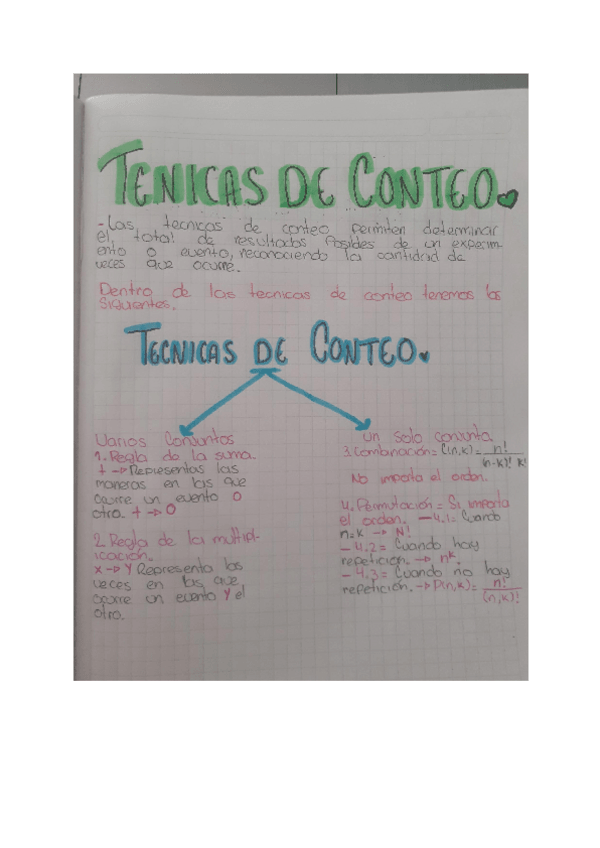 TENICAS DE CONTEO.
- Las tecnicas de conteo permiten determinar
el total de resultados Posibles de un experim-
ento o evento, reconociendo la cantidad de
veces que ocurre.
Dentro de las tecnicas de conteo tenemos las
Siguientes.
TECNICAS DE CONTEO.
Varios Conjuntos
1. Regla de la suma.
+ → Representas las
maneras en las que
ocurre un evento o
otro. + → O
2. Regla de la multipl-
icación.
x → Y Representa las
veces en las que
ocurre un evento Y el
otro.
Un solo conjunto
3. Combinación = C(n,k) = n!
(n-k)! k!
No importa el orden.
4. Permutación = Si importa
el orden. — 4.1 = Cuando
n=k → N!
— 4.2 = Cuando hay
repetición. → n^k.
— 4.3 = Cuando no hay
repetición. → P(n,k) = n!
(n,k)!